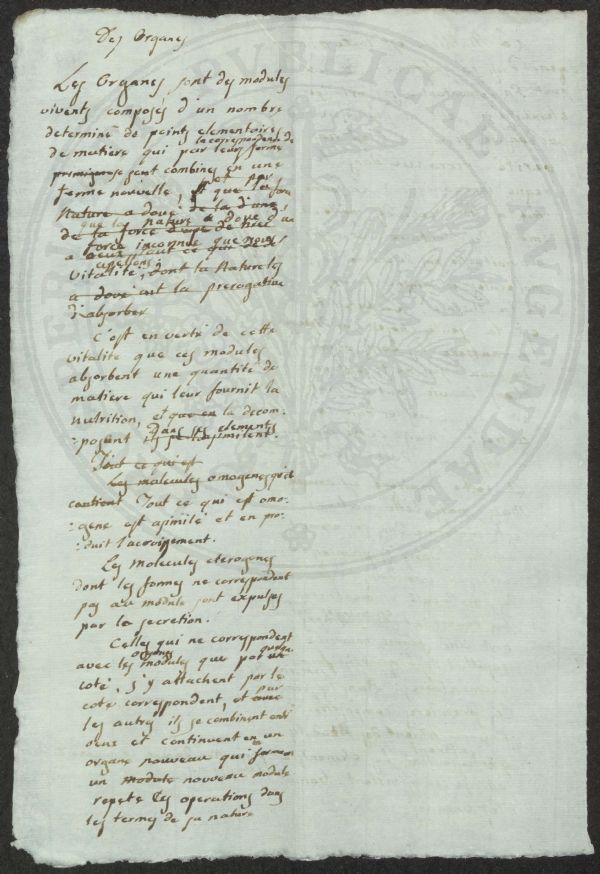 Des Organes
Les Organes sont des modules
vivents composés d'un nombre
determiné de points elementaires
de matiere qui par leurs forme
la correspondence de
primigene se sont combinés en une
forme nouvelle et par
Nature a doué de la d'une
que la nature a doué d'un
de la force
force inconue que nous
a
appellons
vitalité, dont la Nature les
a doué ont la prerogative
d'absorber
C'est en vertu de cette
vitalité que ces modules
absorbent une quantité de
matiere qui leur fournit la
nutrition, et que en la decom-
:posent dans ses elements
ils se l'assimilent.
Tout ce qui est
Les molecules omogenes qu'el
contient Tout ce qui est omo-
:gene est assimilé et en pro-
:duit l'acroissement.
Les molecules eterogenes
dont les formes ne correspondent
pas au module sont expulses
par la secretion.
Celles qui ne correspondent
avec les modules que par un
organes quelque
coté, s'y attachent par le
coté correspondent, et avec
par
les autres ils se combinent entr
eux et continuent en un
organe nouveau qui forme
en
un module nouveau module
repete les operations dans
les termes de sa nature